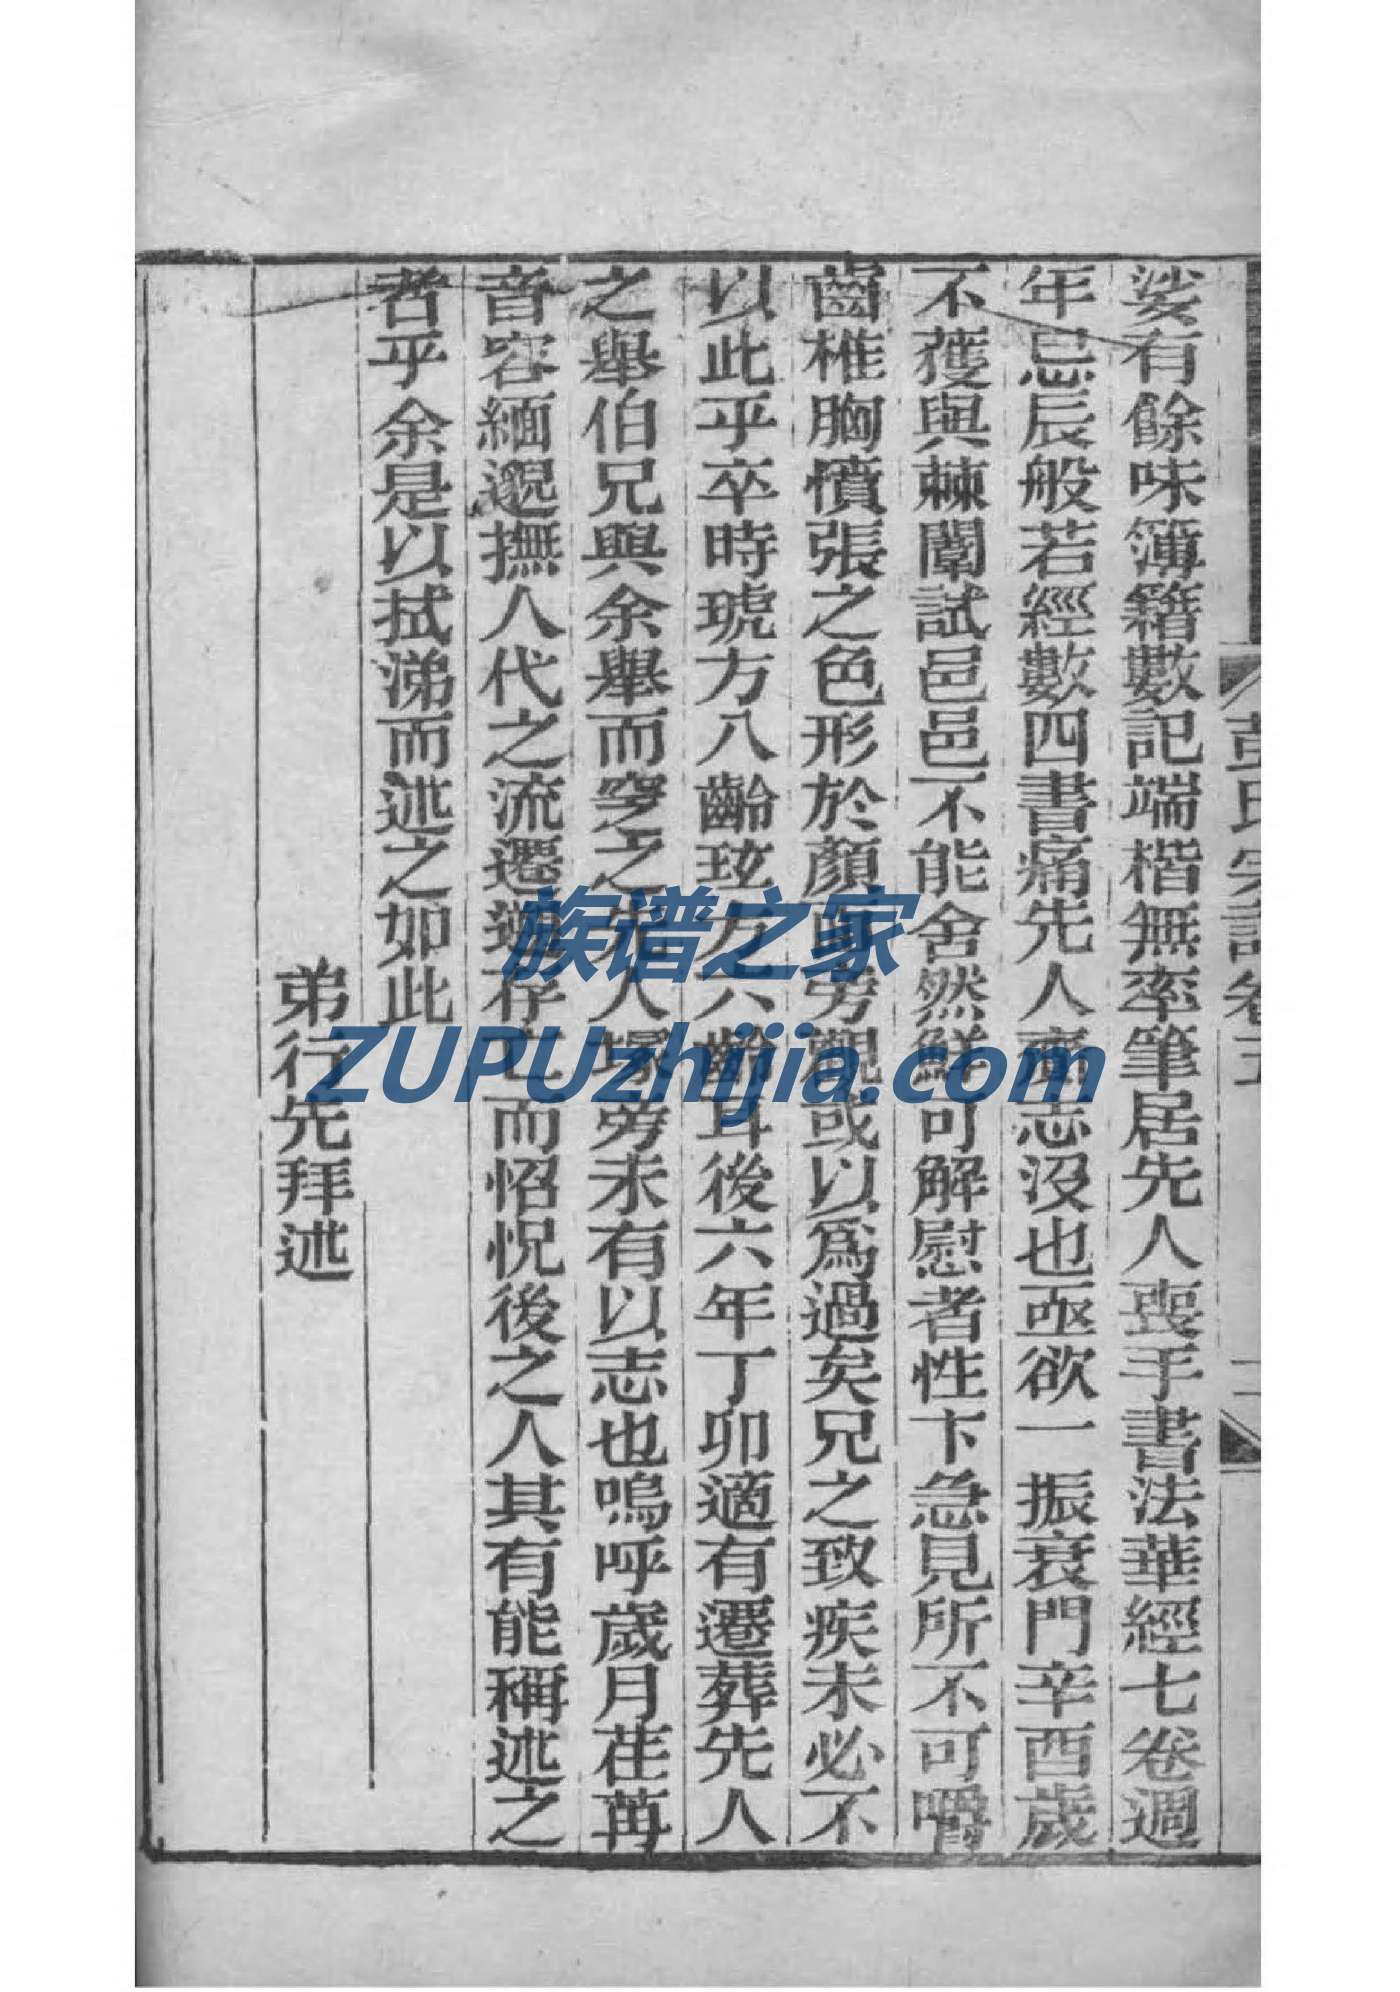 彭氏宗譜卷五
娑有餘味簿籍數記端楷無率筆居先人喪手書法華經七卷週
年忌辰般若經數四書痛先人齎志沒也亟欲一振衰門辛酉歲
不獲與棘闈試邑邑不能舍然鮮可解慰者性卞急見所不可嚼
齒椎胸憤張之色形於顏面旁觀或以爲過矣兄之致疾未必不
以此乎卒時琥方八齡玹方六齡耳後六年丁卯適有遷葬先人
之舉伯兄與余舉而窆之先人塚旁未有以志也嗚呼歲月荏苒
音容緬邈撫人代之流遷逝存亡而怊怳後之人其有能稱述之
者乎余是以拭涕而述之如此
弟行先拜述
族谱之家
ZUPUzhijia.com